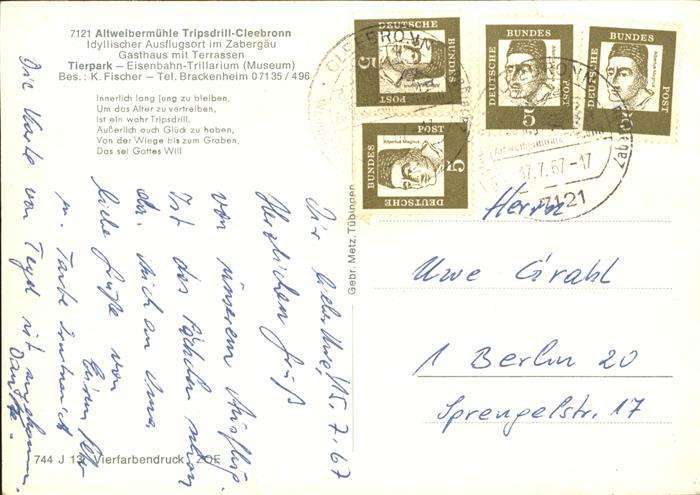 7121 Altweibermühle Tripsdrill-Cleebronn
Idyllischer Ausflugsort im Zabergäu
Gasthaus mit Terrassen
Tierpark – Eisenbahn-Trillarium (Museum)
Bes.: K. Fischer – Tel. Brackenheim 07135/496
Innerlich lang jung zu bleiben,
Um das Alter zu vertreiben,
Ist ein wahr Tripsdrill,
Äußerlich auch Glück zu haben,
Von der Wiege bis zum Graben,
Das sei Gottes Will
15.7.67
Herzlichen Gruß
von unserem Ausflug.
Ist das
an Oma
liebe Grüße von
Die Karte von Tegel ist angekommen.
Danke.
744 J 13 Vierfarbendruck ZOE
Gebr. Metz, Tübingen
DEUTSCHE BUNDES POST 5
DEUTSCHE BUNDES POST 5
DEUTSCHE BUNDES POST
DEUTSCHE BUNDES POST 5
Albertus Magnus
CLEEBRONN
17.7.67-17
7121
Herrn
Uwe Grahl
1 Berlin 20
Sprengelstr. 17